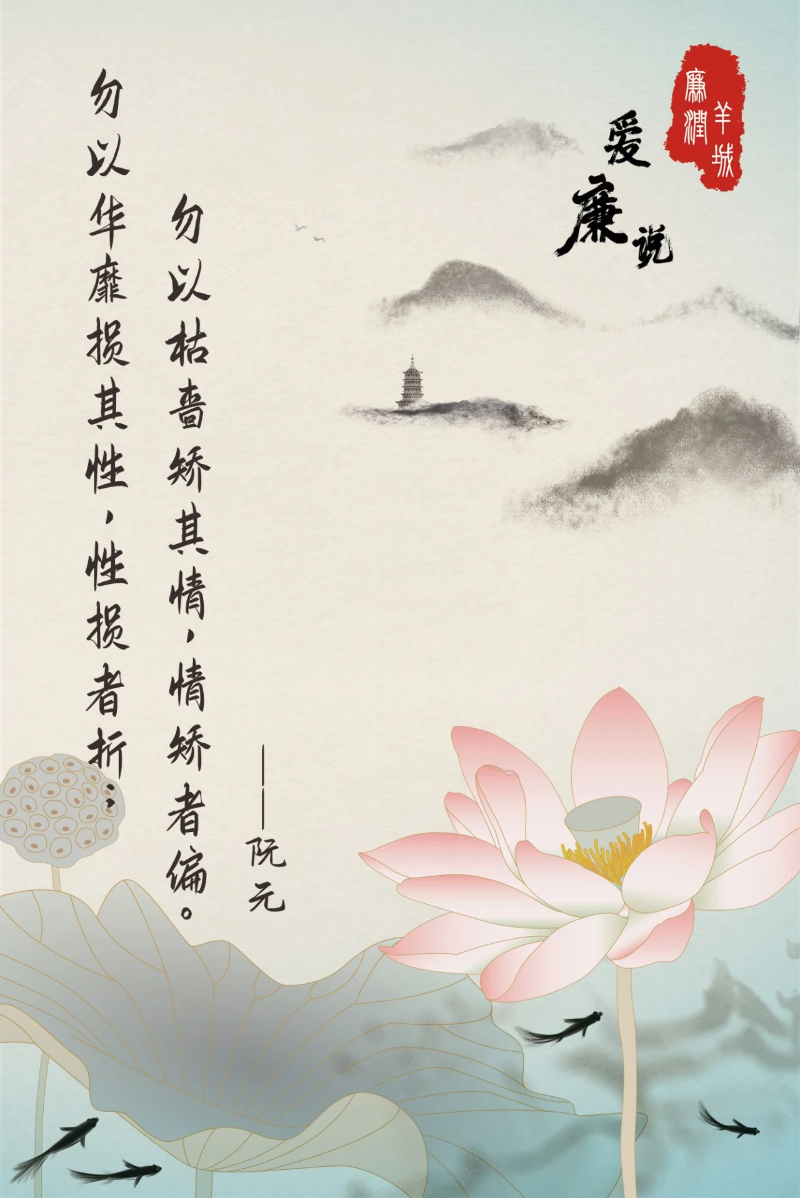 廉潤
羊城
爱廉说
勿以华靡损其性，性损者折；
勿以枯啬矫其情，情矫者偏。
——阮元